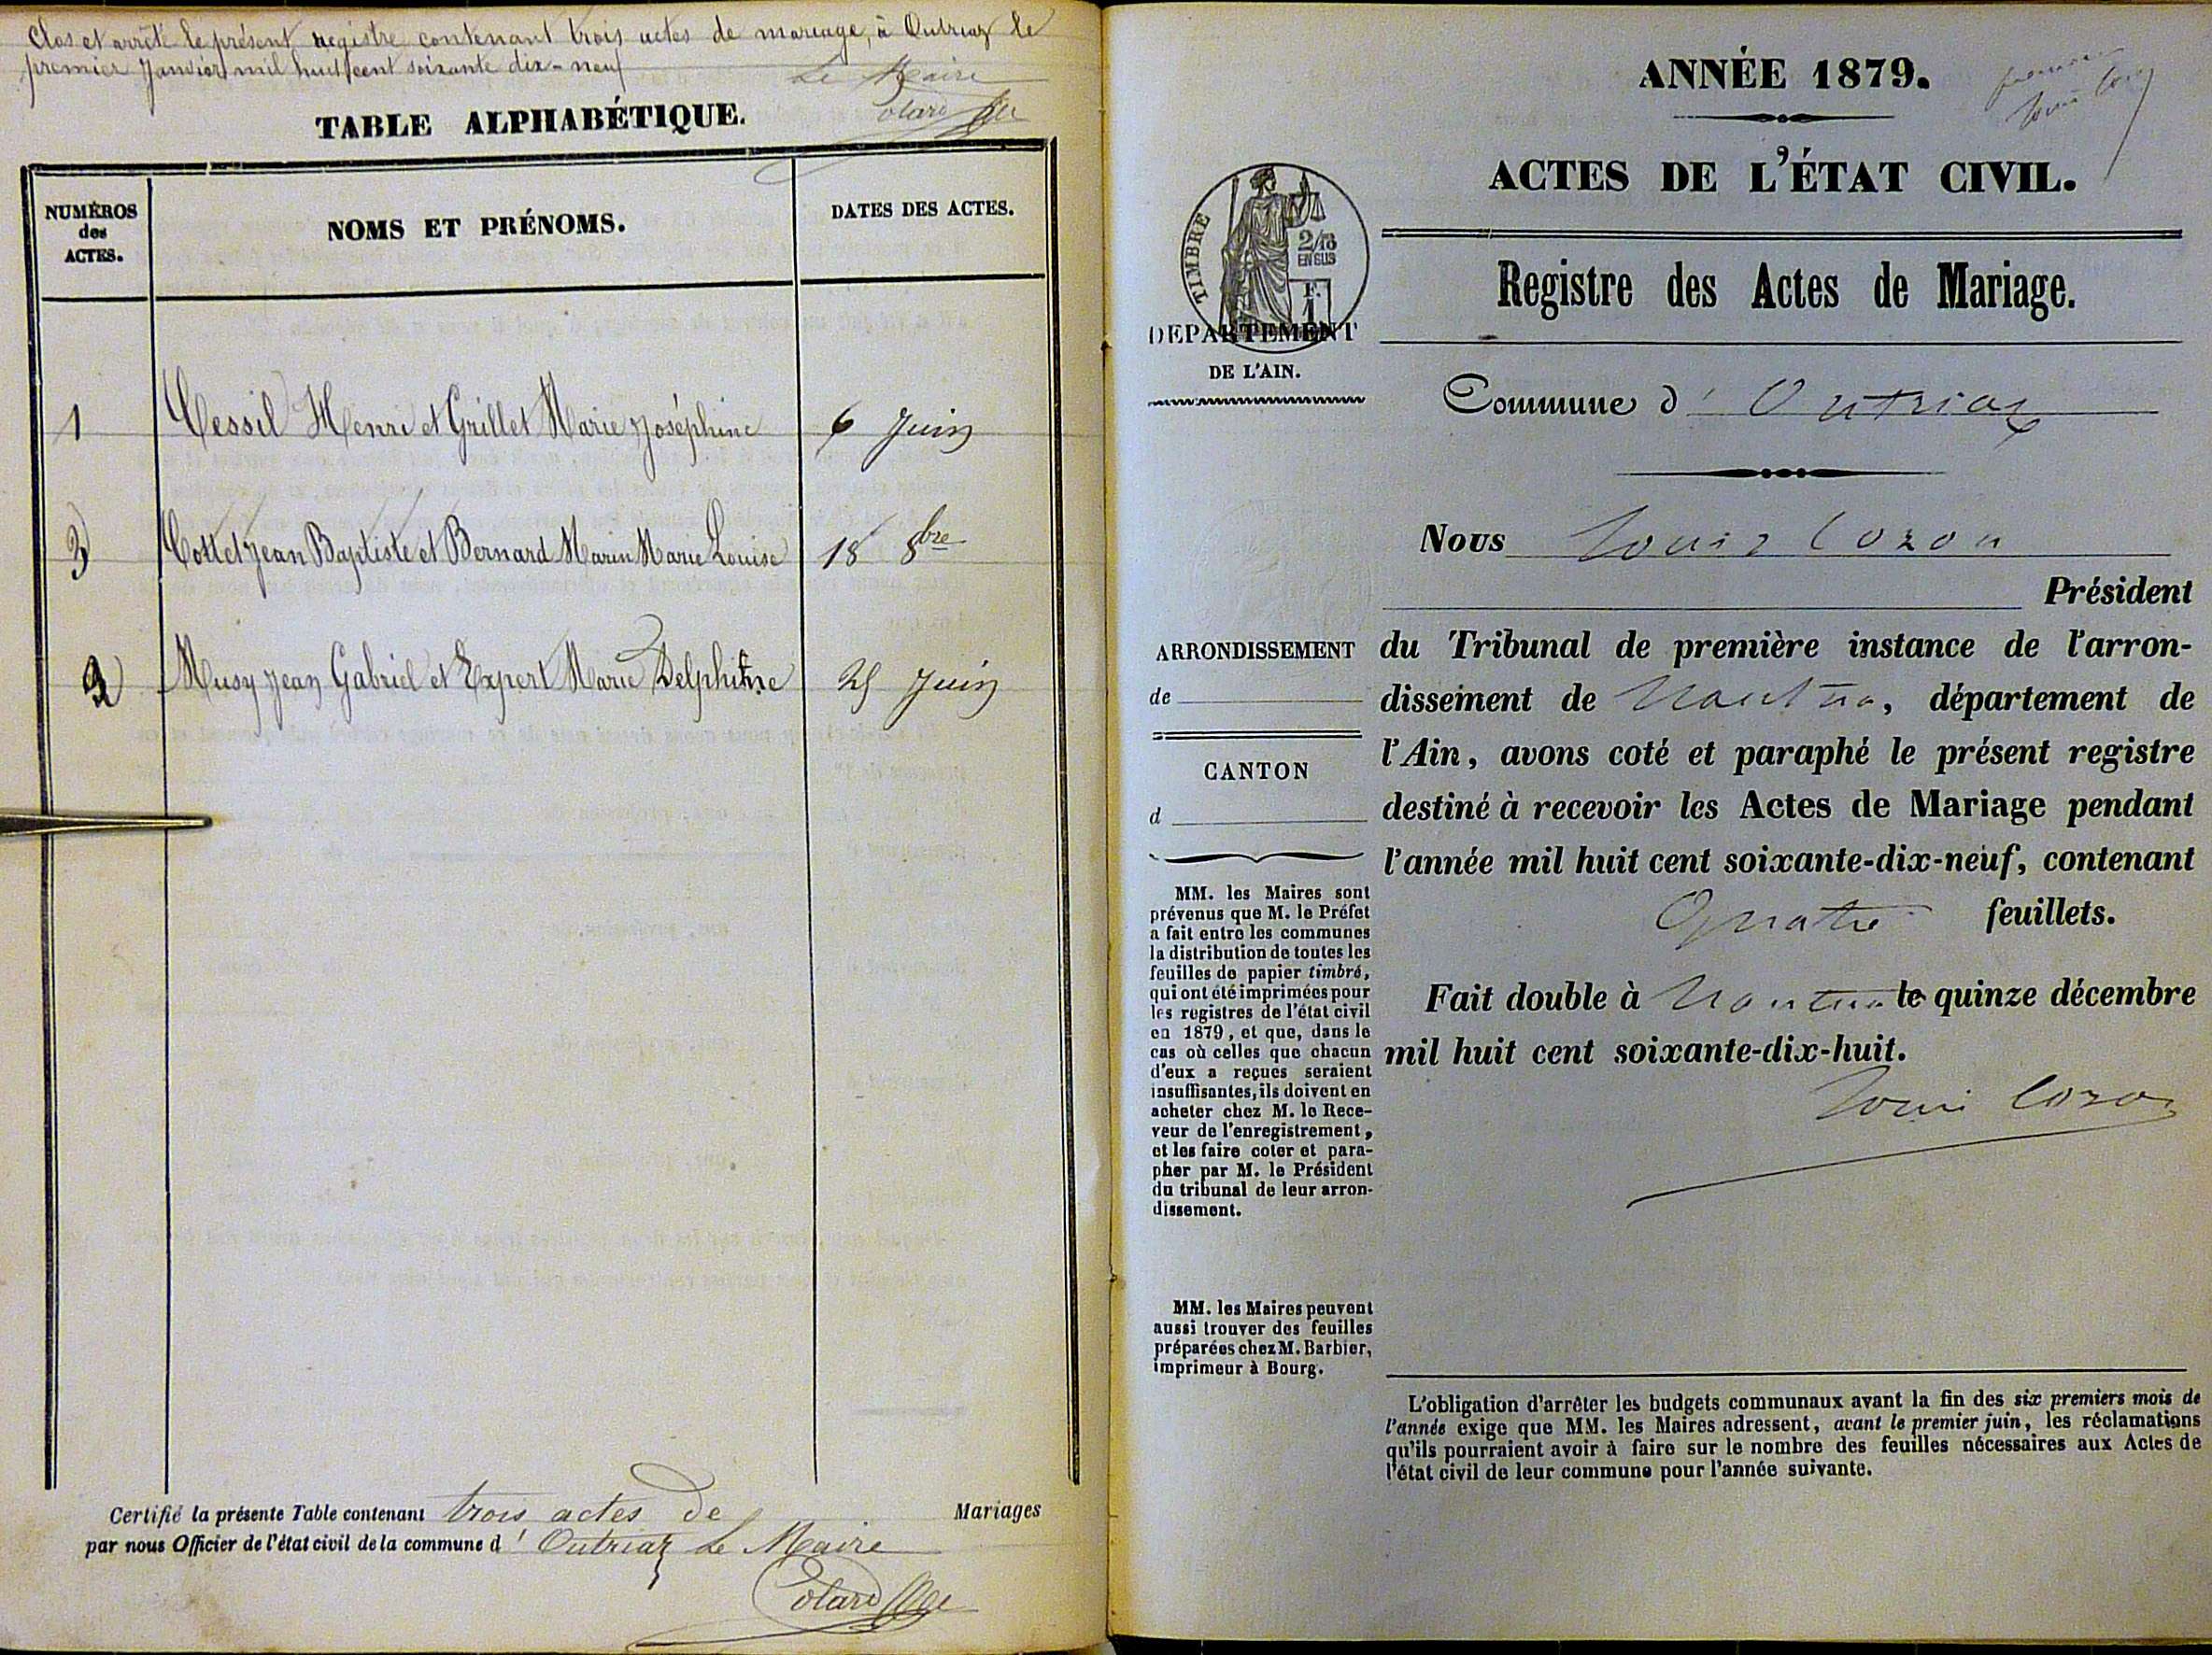 Clos et arrêté le présent registre contenant trois actes de mariage, à Outriaz le
premier Janvier mil huit cent soixante dix-neuf
Le Maire
TABLE ALPHABÉTIQUE.
NUMÉROS
des
ACTES.
NOMS ET PRÉNOMS.
DATES DES ACTES.
1 Cessil Henri et Grillet Marie Joséphine 6 Juin
3 Cottet Jean Baptiste et Bernard Marin Marie Louise 18 8bre
2 Musy Jean Gabriel et Expert Marie Delphine 25 Juin
Certifié la présente Table contenant trois actes de Mariages
par nous Officier de l'état civil de la commune d' Outriaz Le Maire
ANNÉE 1879.
premier
Louis Cozon
ACTES DE L'ÉTAT CIVIL.
TIMBRE
2/10
EN SUS
F.
1
Registre des Actes de Mariage.
DEPARTEMENT
DE L'AIN.
Commune d' Outriaz
Nous Louis Cozon
Président
ARRONDISSEMENT
de
CANTON
d
du Tribunal de première instance de l'arron-
dissement de Nantua, département de
l'Ain, avons coté et paraphé le présent registre
destiné à recevoir les Actes de Mariage pendant
l'année mil huit cent soixante-dix-neuf, contenant
Quatre feuillets.
Fait double à Nantua le quinze décembre
mil huit cent soixante-dix-huit.
Louis Cozon
MM. les Maires sont
prévenus que M. le Préfet
a fait entre les communes
la distribution de toutes les
feuilles de papier timbré,
qui ont été imprimées pour
les registres de l'état civil
en 1879, et que, dans le
cas où celles que chacun
d'eux a reçues seraient
insuffisantes, ils doivent en
acheter chez M. le Rece-
veur de l'enregistrement,
et les faire coter et para-
pher par M. le Président
du tribunal de leur arron-
dissement.
MM. les Maires peuvent
aussi trouver des feuilles
préparées chez M. Barbier,
imprimeur à Bourg.
L'obligation d'arrêter les budgets communaux avant la fin des six premiers mois de
l'année exige que MM. les Maires adressent, avant le premier juin, les réclamations
qu'ils pourraient avoir à faire sur le nombre des feuilles nécessaires aux Actes de
l'état civil de leur commune pour l'année suivante.